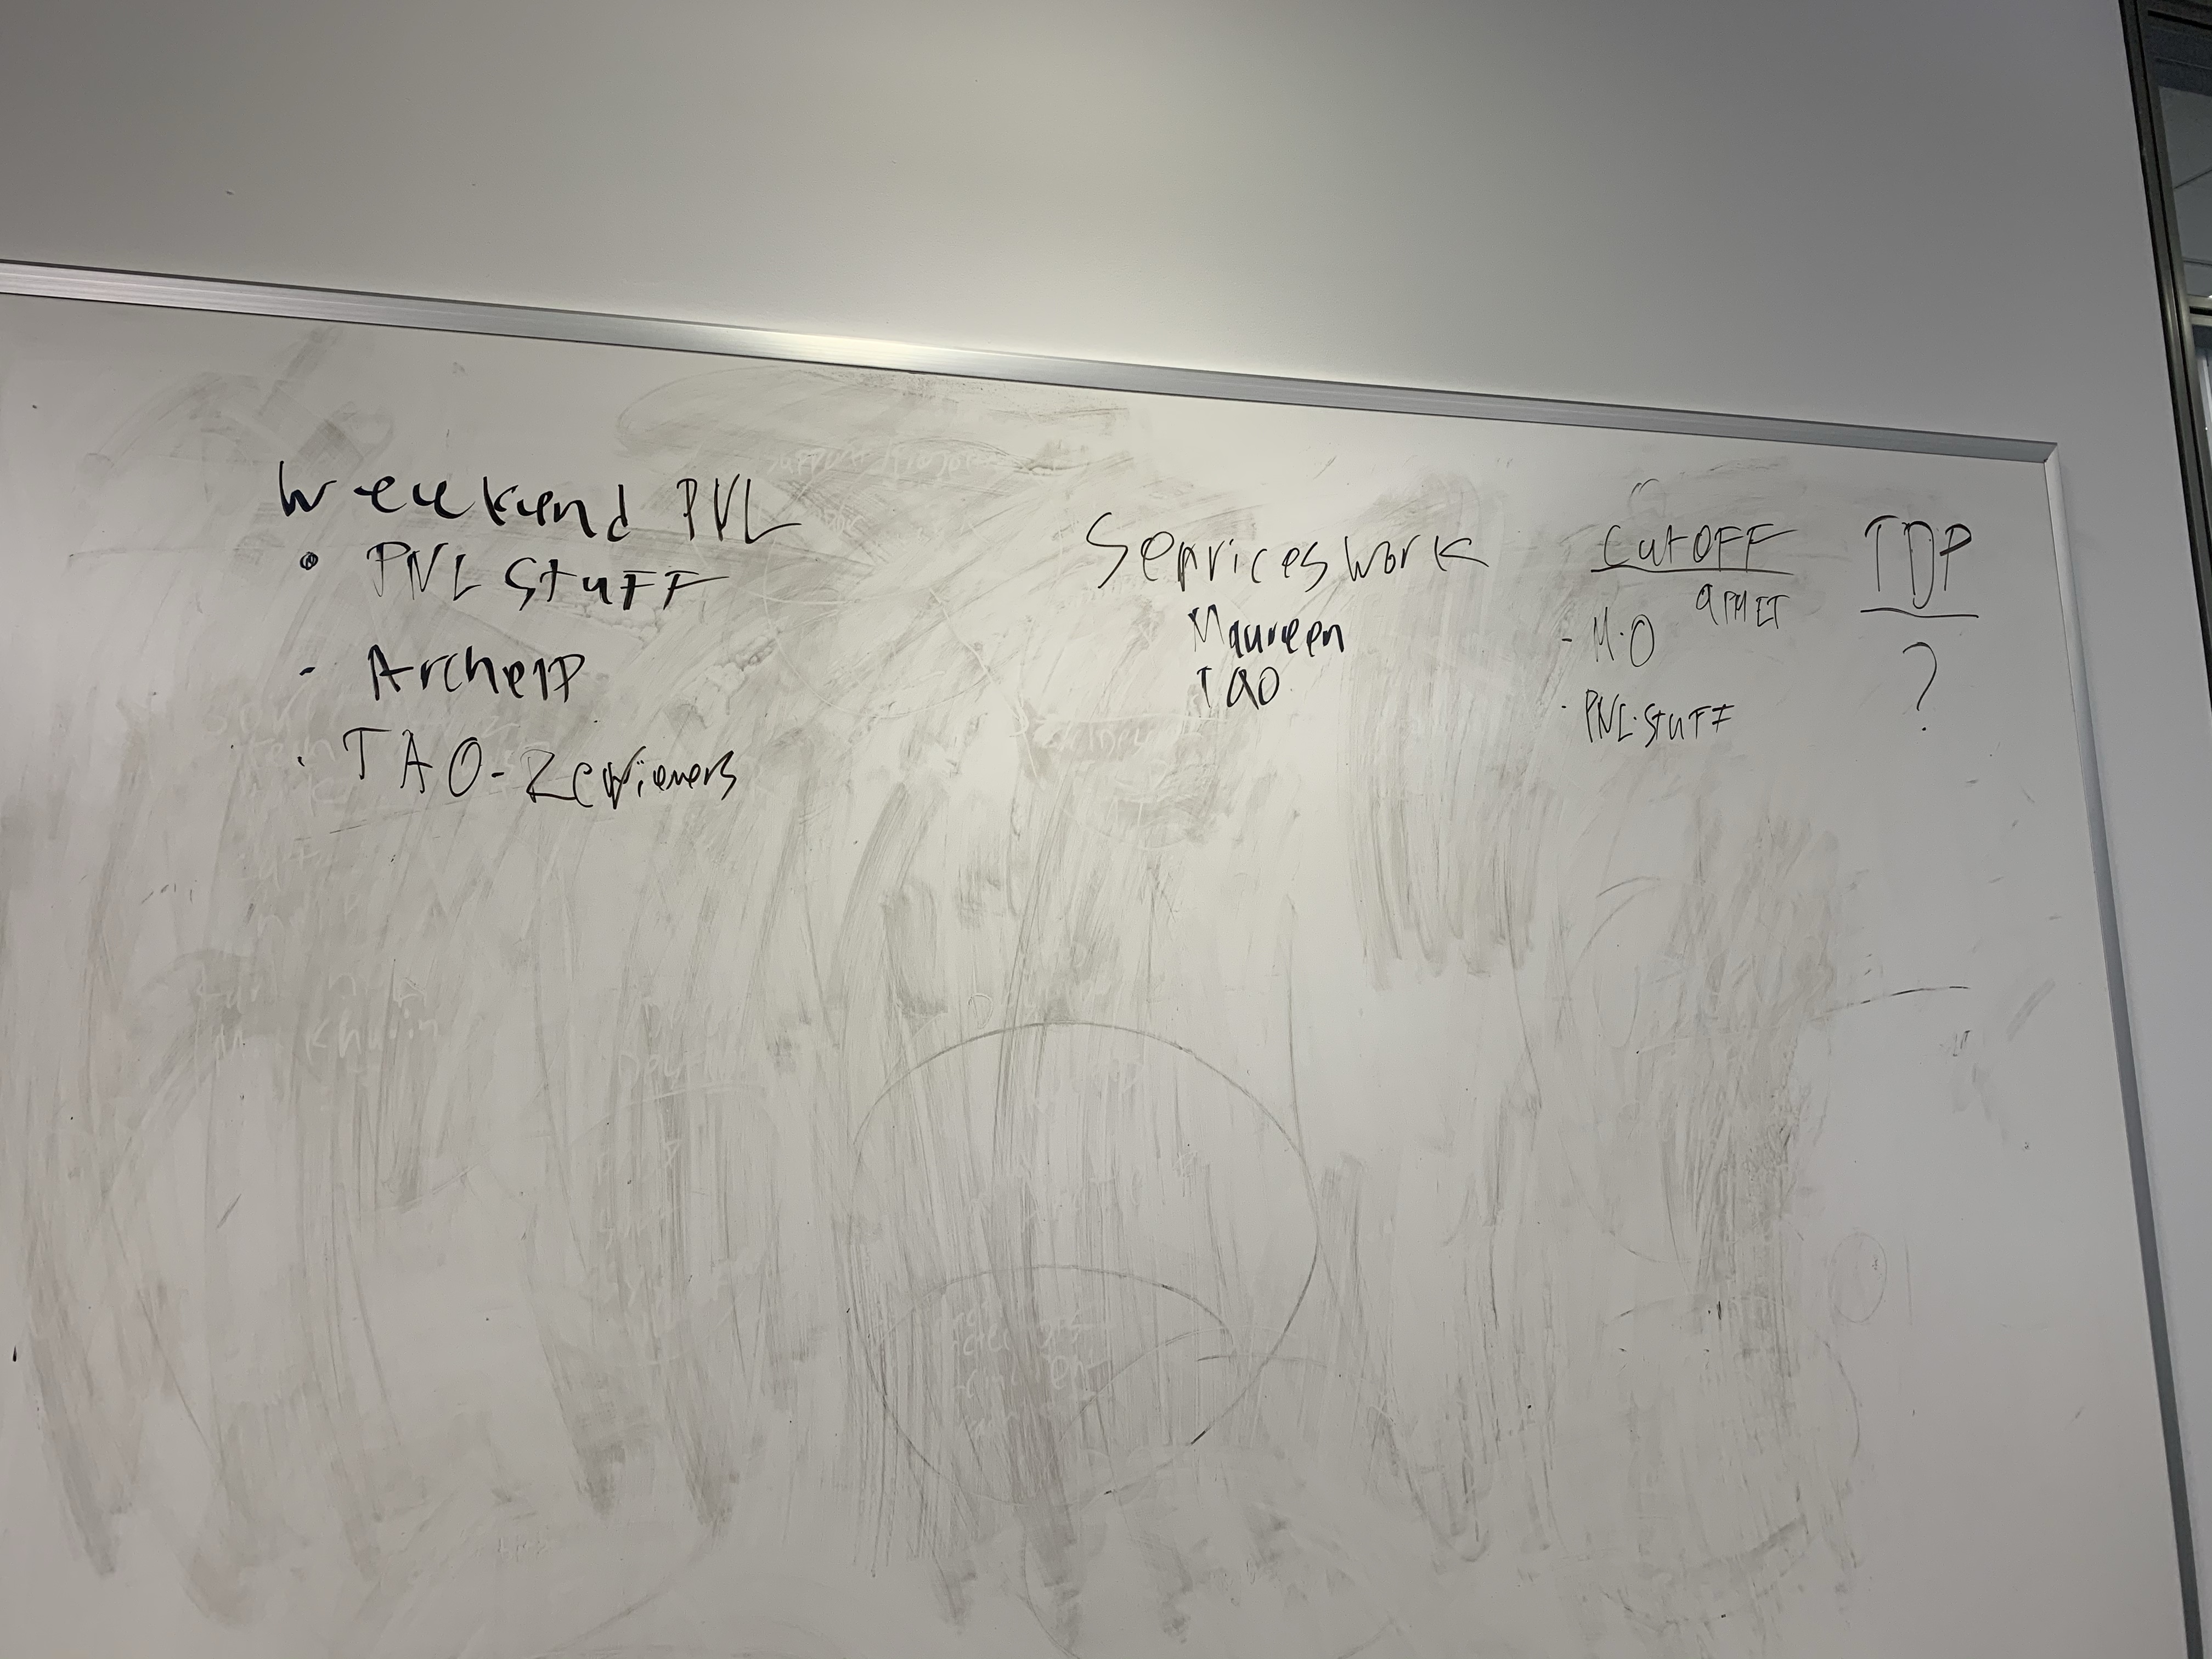 Weekend PVL
• PNL Stuff
- Archelp
· TAO-Reviewers
Services work
Maureen
TAO
CutOFF
9PM ET
- M.O
· PNL.Stuff
TDP
?